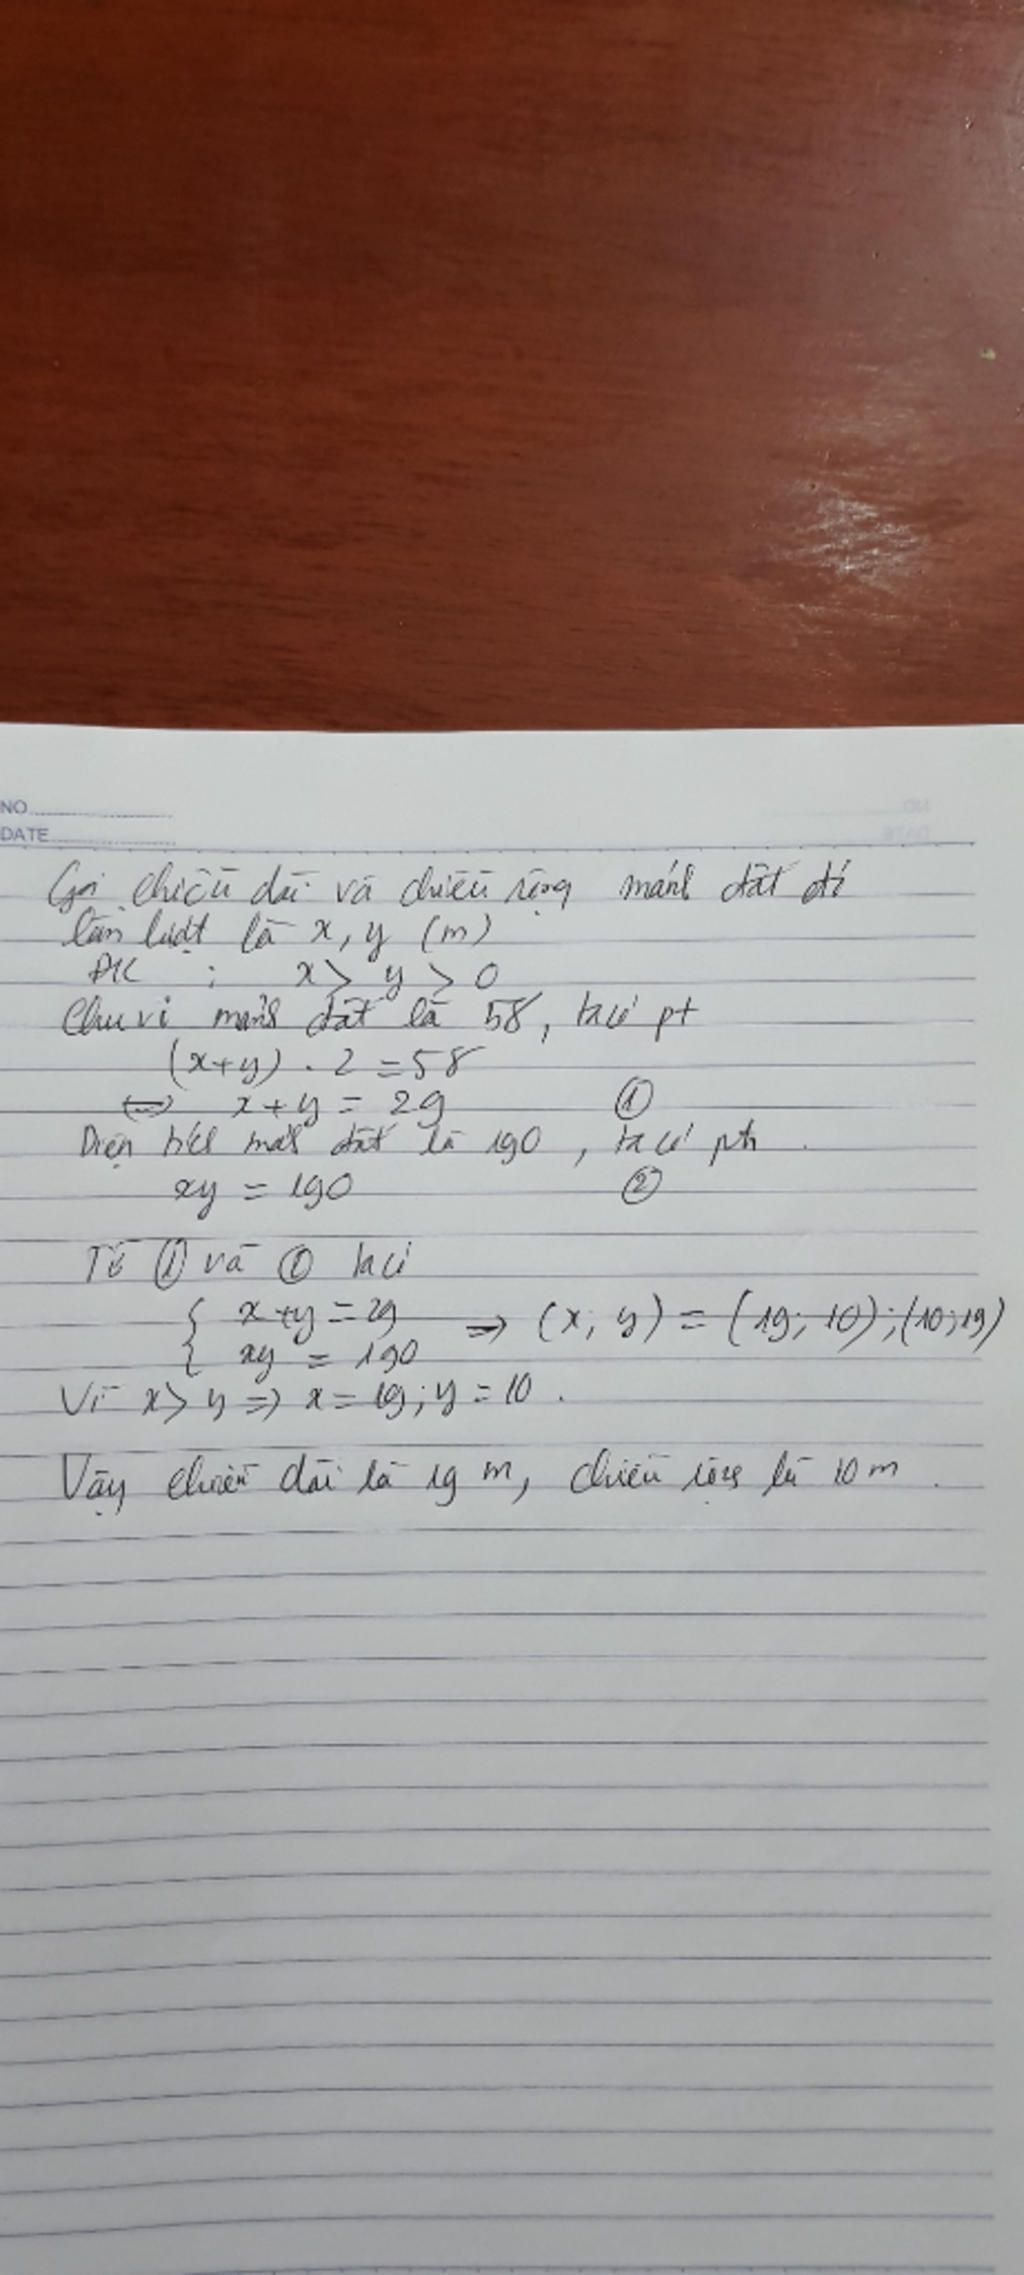 NO
DATE
Gọi chiều dài và chiều rộng mảnh đất đó
lần lượt là x, y (m)
ĐK : x > y > 0
Chu vi mảnh đất là 58, ta có pt
(x+y) . 2 = 58
⇔ x + y = 29 ①
Diện tích mảnh đất là 190, ta có pth
xy = 190 ②
Từ ① và ② ta có
{ x + y = 29 ⇒ (x; y) = (19; 10); (10; 19)
{ xy = 190
Vì x > y ⇒ x = 19; y = 10 .
Vậy chiều dài là 19 m, chiều rộng là 10 m .